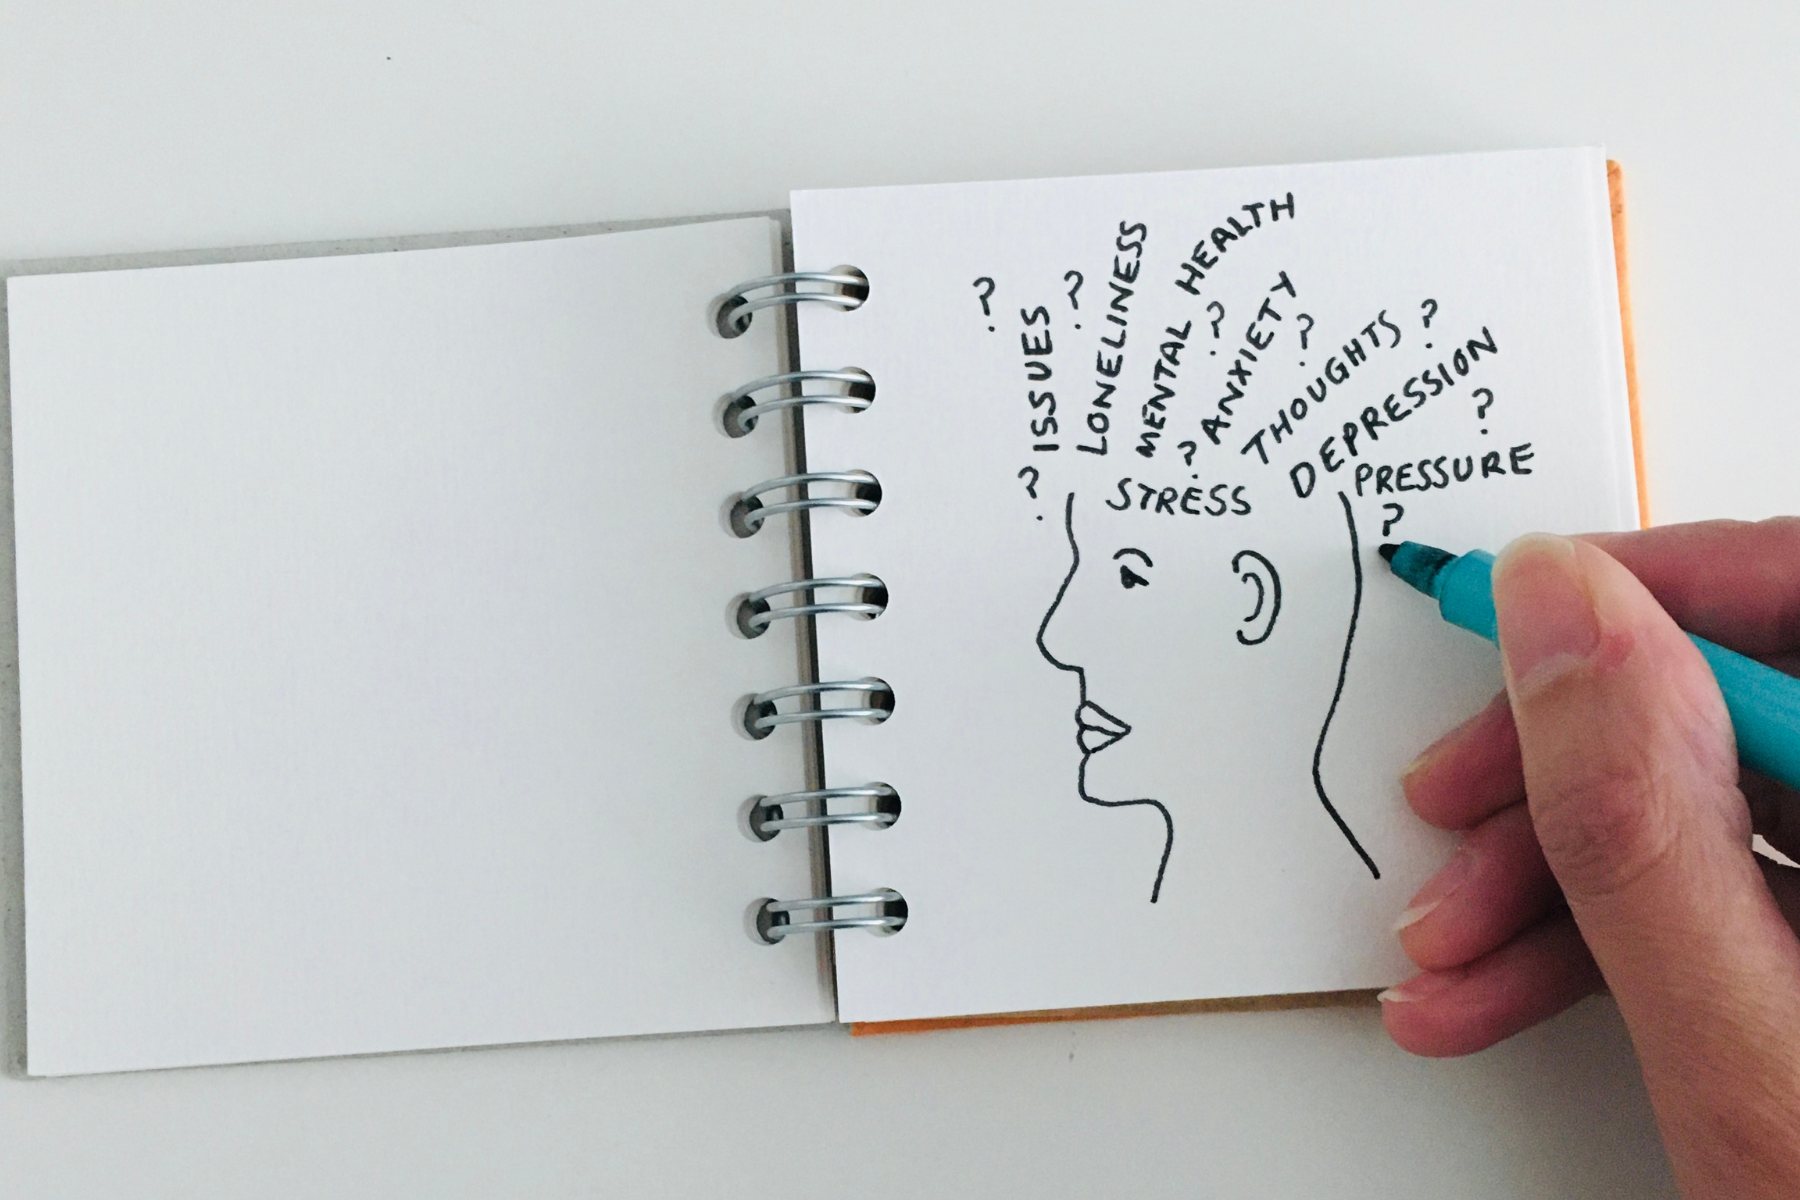 ?
ISSUES
?
LONELINESS
MENTAL HEALTH
?
ANXIETY
?
THOUGHTS ?
DEPRESSION
?
PRESSURE
?
?
STRESS
?